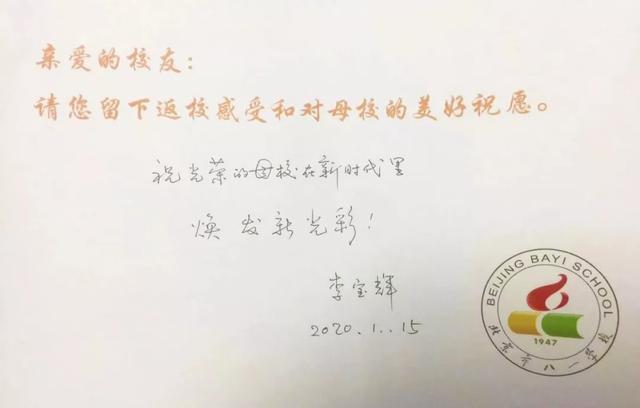 亲爱的校友：
请您留下返校感受和对母校的美好祝愿。
祝光荣的母校在新时代里
焕发新光彩！
李宝辉
2020.1.15
BEIJING BAYI SCHOOL
1947
北京市八一学校